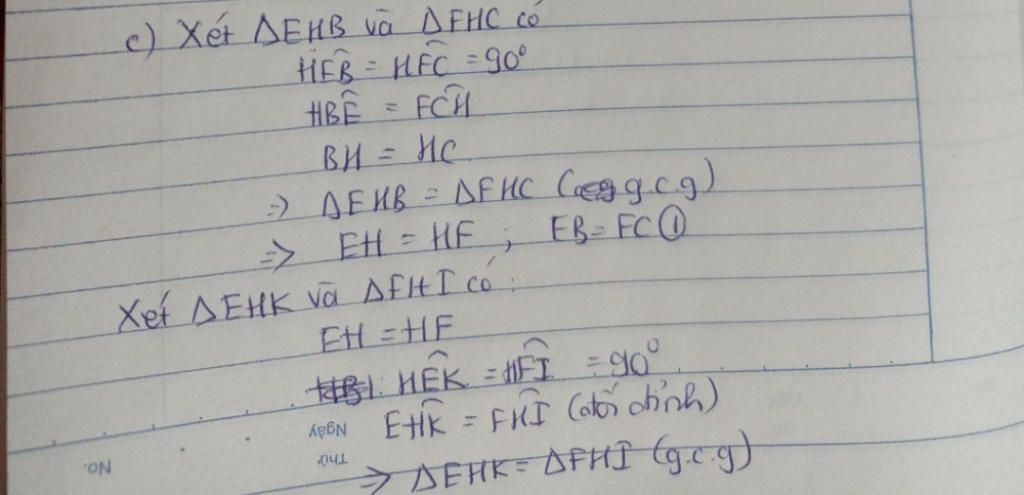 c) Xét ΔEHB và ΔFHC có
HÊB = HF̂C = 90°
HBÊ = FCĤ
BH = HC
=> ΔEHB = ΔFHC (g.c.g)
=> EH = HF ; EB = FC ①
Xét ΔEHK và ΔFHI có :
EH = HF
HÊK = HF̂I = 90°
EHK̂ = FĤI (đối đỉnh)
=> ΔEHK = ΔFHI (g.c.g)
Ngày
Thứ
No.